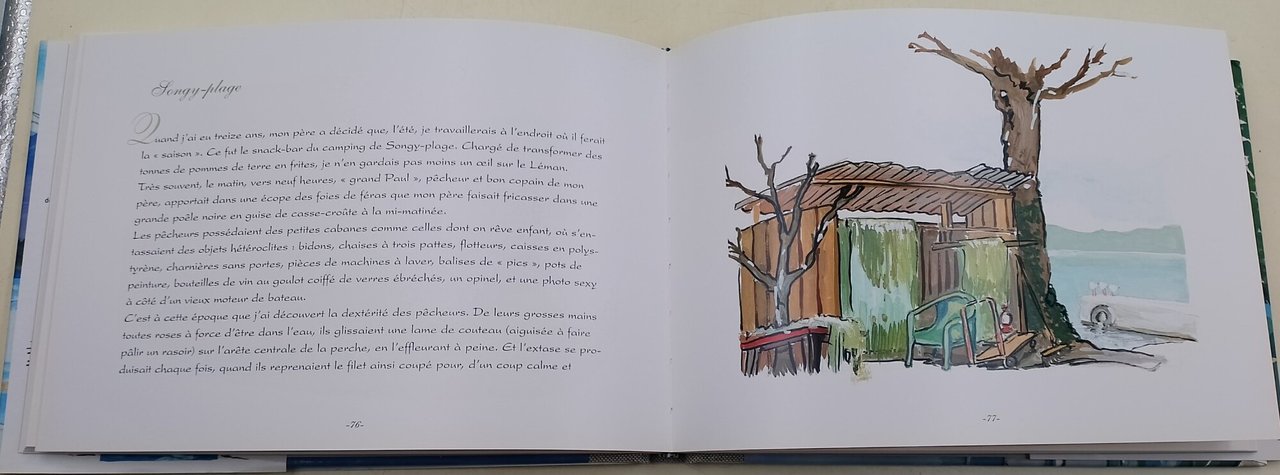 Songy-plage
Quand j'ai eu treize ans, mon père a décidé que, l'été, je travaillerais à l'endroit où il ferait
la « saison ». Ce fut le snack-bar du camping de Songy-plage. Chargé de transformer des
tonnes de pommes de terre en frites, je n'en gardais pas moins un œil sur le Léman.
Très souvent, le matin, vers neuf heures, « grand Paul », pêcheur et bon copain de mon
père, apportait dans une écope des foies de féras que mon père faisait fricasser dans une
grande poêle noire en guise de casse-croûte à la mi-matinée.
Les pêcheurs possédaient des petites cabanes comme celles dont on rêve enfant, où s'en-
tassaient des objets hétéroclites : bidons, chaises à trois pattes, flotteurs, caisses en polys-
tyrène, charnières sans portes, pièces de machines à laver, balises de « pics », pots de
peinture, bouteilles de vin au goulot coiffé de verres ébréchés, un opinel, et une photo sexy
à côté d'un vieux moteur de bateau.
C'est à cette époque que j'ai découvert la dextérité des pêcheurs. De leurs grosses mains
toutes roses à force d'être dans l'eau, ils glissaient une lame de couteau (aiguisée à faire
pâlir un rasoir) sur l'arête centrale de la perche, en l'effleurant à peine. Et l'extase se pro-
duisait chaque fois, quand ils reprenaient le filet ainsi coupé pour, d'un coup calme et
-76-
-77-